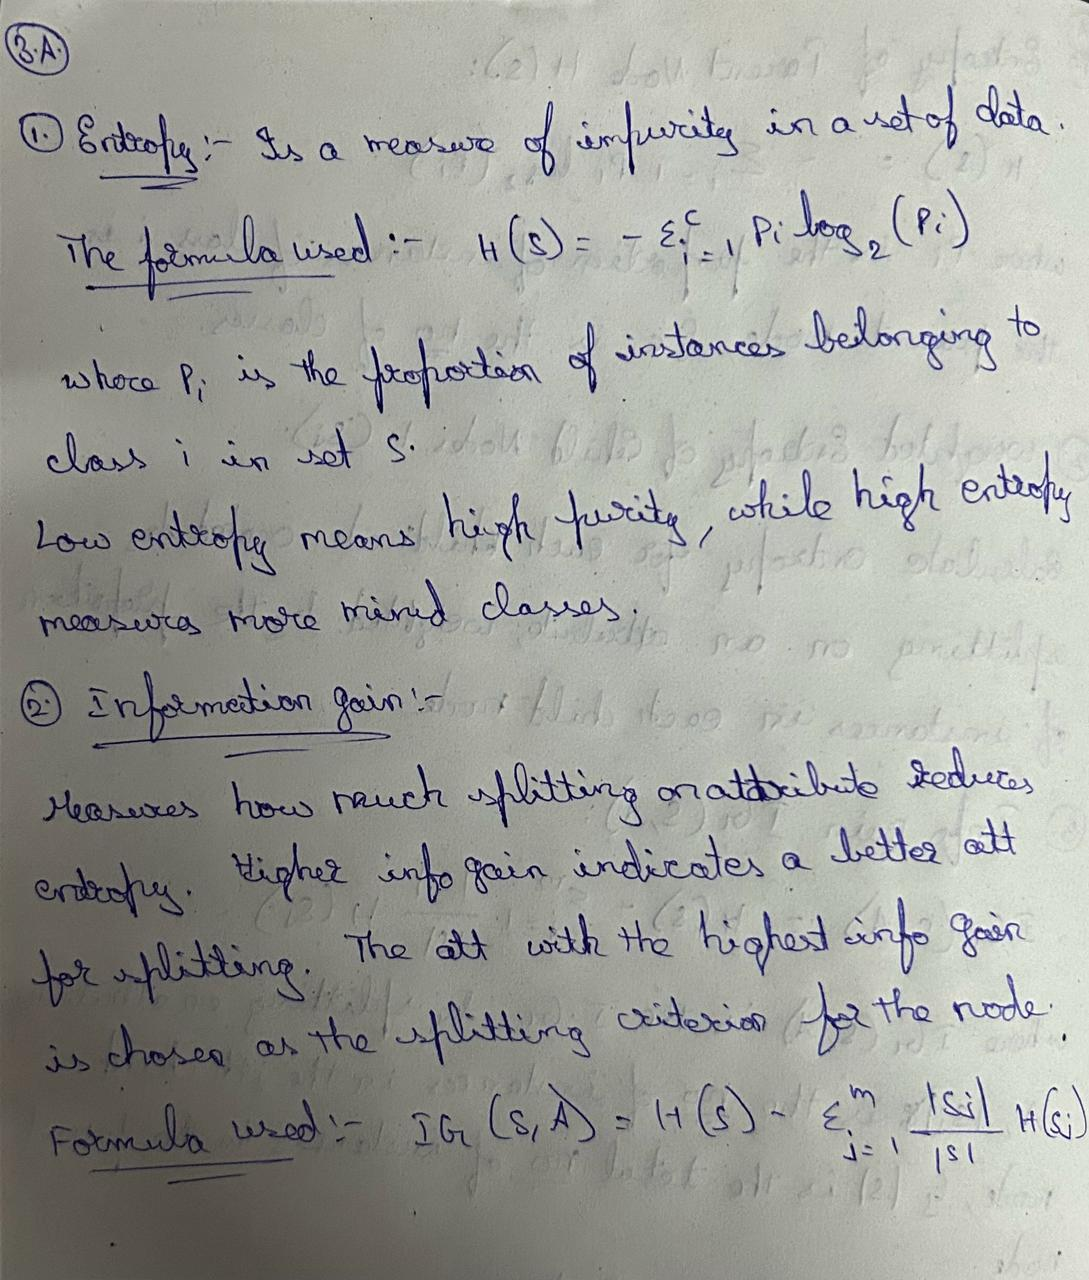 3.A.
1. Entropy :- Is a measure of impurity in a set of data.
The formula used :- H(S) = - Σ^c_{i=1} Pi log2 (Pi)
where Pi is the proportion of instances belonging to
class i in set S.
Low entropy means high purity, while high entropy
measures more mixed classes.
2. Information gain :-
Measures how much splitting on attribute reduces
entropy. Higher info gain indicates a better att
for splitting. The att with the highest info gain
is chosen as the splitting criterion for the node.
Formula used :- IG (S, A) = H(S) - Σ^m_{j=1} |Sj|/|S| H(Sj)